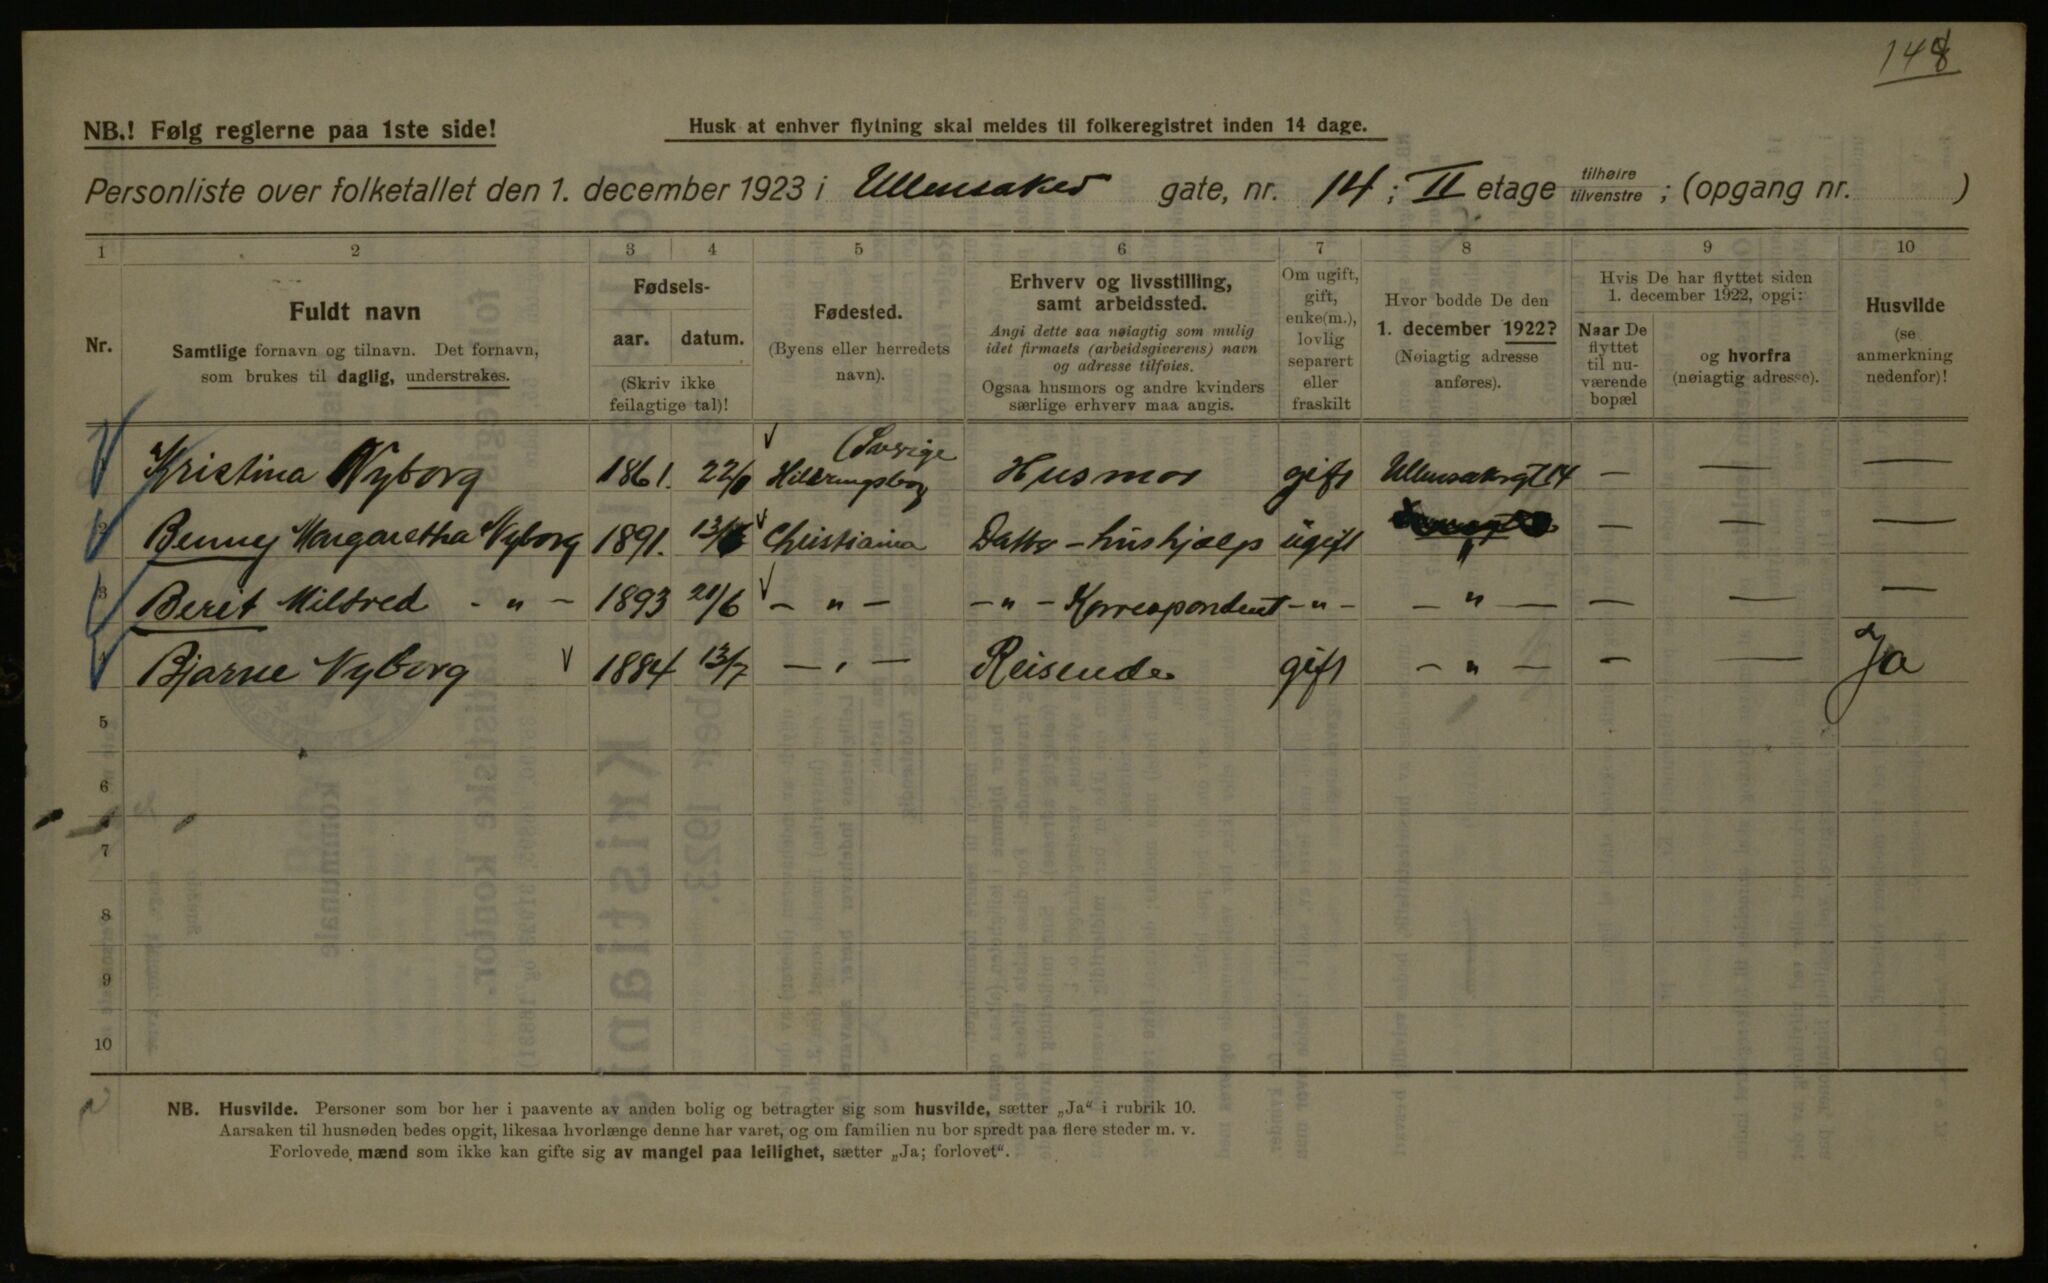 148
NB.! Følg reglerne paa 1ste side!
Husk at enhver flytning skal meldes til folkeregistret inden 14 dage.
Personliste over folketallet den 1. december 1923 i Ullensaker gate, nr. 14 ; II etage tilhøire tilvenstre ; (opgang nr. )
1 2 3 4 5 6 7 8 9 10
Nr.
Fuldt navn
Samtlige fornavn og tilnavn. Det fornavn,
som brukes til daglig, understrekes.
Fødsels-
aar. datum.
(Skriv ikke
feilagtige tal)!
Fødested.
(Byens eller herredets
navn).
Erhverv og livsstilling,
samt arbeidssted.
Angi dette saa nøiagtig som mulig
idet firmaets (arbeidsgiverens) navn
og adresse tilføies.
Ogsaa husmors og andre kvinders
særlige erhverv maa angis.
Om ugift,
gift,
enke(m.),
lovlig
separert
eller
fraskilt
Hvor bodde De den
1. december 1922?
(Nøiagtig adresse
anføres).
Hvis De har flyttet siden
1. december 1922, opgi:
Naar De
flyttet
til nu-
værende
bopæl
og hvorfra
(nøiagtig adresse).
Husvilde
(se
anmerkning
nedenfor)!
(Sverige
Kristina Nyborg 1861. Husmor gift Ullensakrgt 14 — — —
2 Benny Margaretha Nyborg 1891. Christiania Datter - hushjælp ugift " — — —
3 Beret Mildred - " - 1893 21/6 - " - - " - Korrespondent - " - - " - — — —
4 Bjarne Nyborg 1884 13/7 - " - Reisende gift - " - — — Ja
5
6
7
8
9
10
NB. Husvilde. Personer som bor her i paavente av anden bolig og betragter sig som husvilde, sætter „Ja“ i rubrik 10.
Aarsaken til husnøden bedes opgit, likesaa hvorlænge denne har varet, og om familien nu bor spredt paa flere steder m. v.
Forlovede mænd som ikke kan gifte sig av mangel paa leilighet, sætter „Ja; forlovet“.